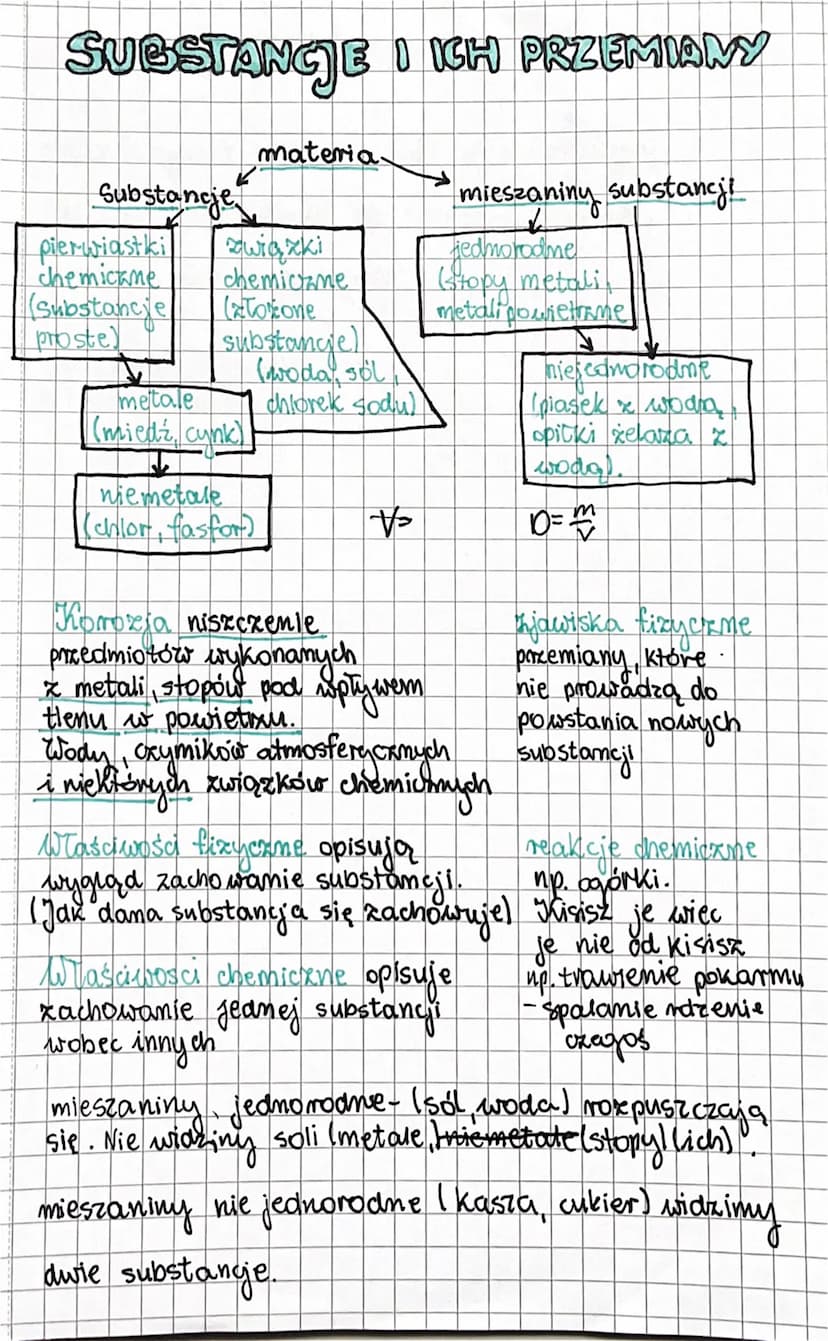 SUBSTANCJE I ICH PRZEMIANY
materia
Substancje
mieszaniny substancji
pierwiastki
chemiczne
(substancje
proste)
związki
chemiczne
(złożone
substancje)
(woda, sól,
chlorek sodu)
jednorodne
(stopy metali,
metali powietrzne
metale
(miedź, cynk)
niejednorodne
(piasek z wodą,
opiłki żelaza z
wodą).
niemetale
(chlor, fasfor)
V=
D= m/V
Korozja niszczenie
przedmiotów wykonanych
z metali, stopów pod wpływem
tlenu w powietrzu.
Wody, czynników atmosferycznych
i niektórych związków chemicznych
zjawiska fizyczne
przemiany, które
nie prowadzą do
powstania nowych
substancji
Właściwości fizyczne opisują
wygląd zachowanie substancji.
(Jak dana substancja się zachowuje)
Właściwosci chemiczne opisuje
zachowanie jednej substancji
wobec innych
reakcje chemiczne
np. ogórki.
Kisisz je więc
je nie od kisisz
np. trawienie pokarmu
- spalanie rdzenie
czegoś
mieszaniny jednorodne - (sól, woda) rozpuszczają
się. Nie widziny soli (metale,) niemetale (stopy) (ich).
mieszaniny nie jednorodne (kasza, cukier) widzimy
dwie substancje.